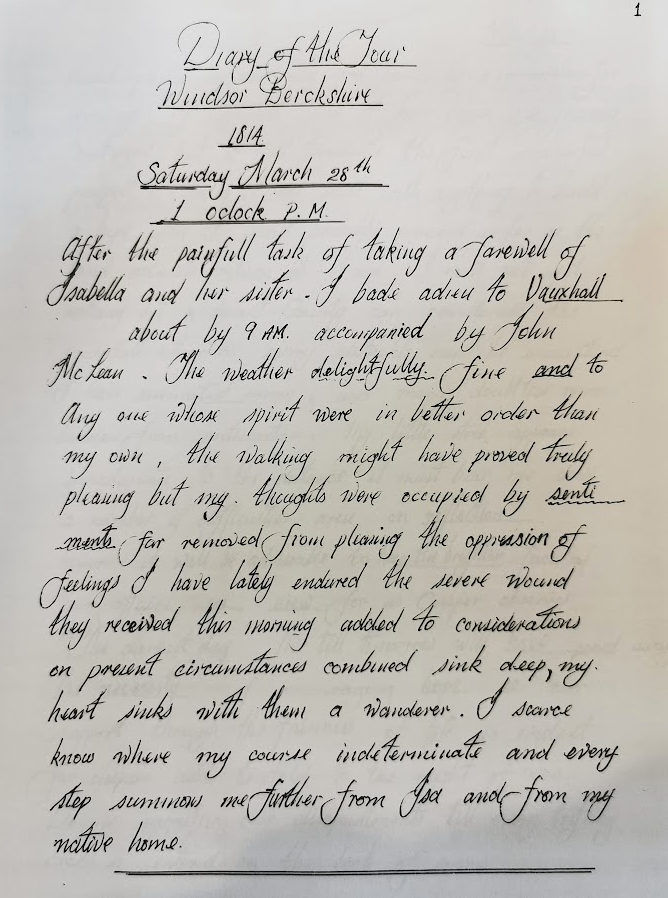 1
Diary of the Tour
Windsor Berckshire
1814
Saturday March 28th
1 oclock P.M.
After the painfull task of taking a farewell of
Isabella and her sister. I bade adieu to Vauxhall
about by 9 AM. accompanied by John
McLean. The weather delightfully. fine and to
Any one whose spirit were in better order than
my own, the walking might have proved truly
pleasing but my. thoughts were occupied by senti
ments far removed from pleasing the oppression of
feelings I have lately endured the severe wound
they received this morning added to considerations
on present circumstances combined sink deep, my.
heart sinks with them a wanderer. I scarce
know where my course indeterminate and every
step summons me further from Isa and from my
native home.